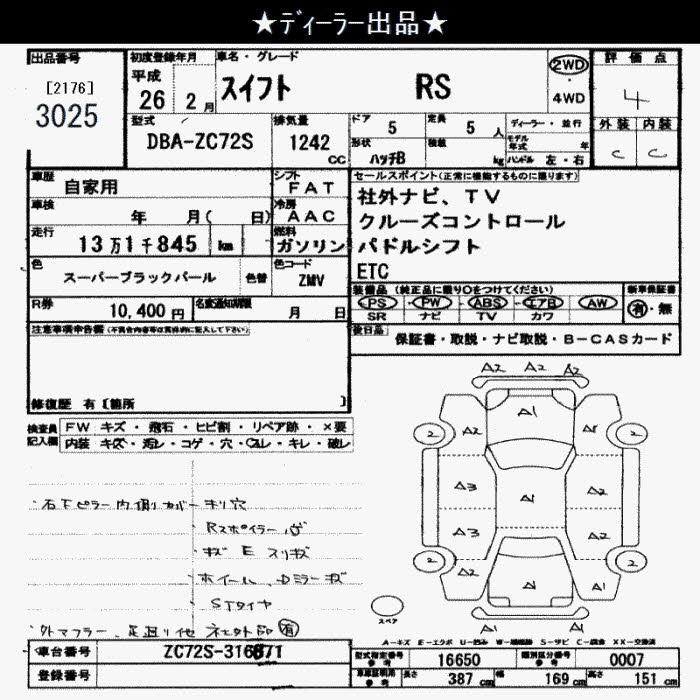 ★ディーラー出品★
出品番号
[2176]
3025
初度登録年月
平成
26年 2月
車名・グレード
スイフト RS
2WD
・
4WD
評価点
4
外装 内装
C C
型式
DBA-ZC72S
排気量
1242
CC
ドア 5
定員 5 人
形状 ハッチB
積載 kg
ディーラー・並行
モデル年式 年
ハンドル 左・右
車歴 自家用
シフト FAT
車検 年 月( 日)
冷房 AAC
走行 13万1千845 km
燃料 ガソリン
色 スーパーブラックパール 色替
色コード ZMV
R券 10,400円
名変通知期限 月 日
セールスポイント(正常に機能するものに限ります)
社外ナビ、TV
クルーズコントロール
パドルシフト
ETC
装備品(純正品に限り○をつけてください)
PS・PW・ABS・エアB AW
SR ナビ TV カワ
新車保証書
有・無
後日品 保証書・取説・ナビ取説・B-CASカード
注意事項申告欄(不具合内容等は具体的に記入して下さい)
修復歴 有〔箇所 〕
検査員記入欄
FW キズ・飛石・ヒビ割・リペア跡・×要
内装 キズ・汚レ・コゲ・穴・スレ・キレ・破レ
・右下ピラー内側カバーキリ穴
Rスポイラー
キズ E スリキズ
ホイール、ドミラーキズ
STタイヤ
外マフラー、足廻り他 社外部有
A2 A2 A2
A1
2 2
A2
A3 A1 A2
A3 A2
2 2
A2 A1
A2 A2
スペア
A-キズ E-エクボ U-凹み W-補修跡 S-サビ C-腐食 XX-交換済
車台番号 ZC72S-316871
登録番号
型式指定番号 参考 16650
類別区分番号 参考 0007
車庫証明用 参考 長さ 387 cm 幅 169 cm 高さ 151 cm